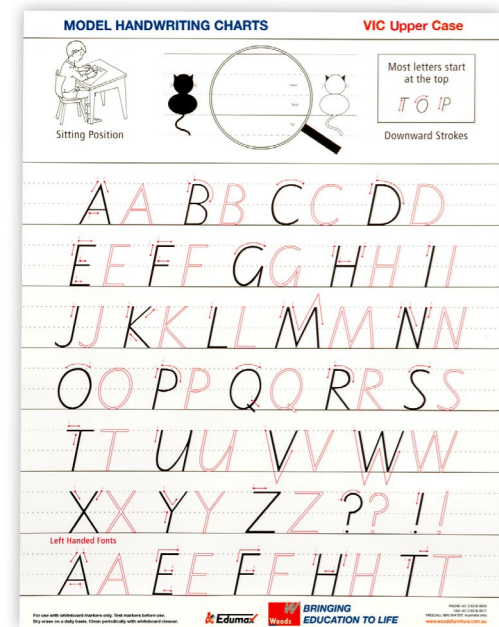 MODEL HANDWRITING CHARTS VIC Upper Case
Most letters start
at the top
T O P
Sitting Position
Downward Strokes
A A B B C C D D
E E F F G G H H I I
J J K K L L M M N N
O O P P Q Q R R S S
T T U U V V W W
X X Y Y Z Z ? ? ! !
Left Handed Fonts
A A E E F F H H T T
For use with whiteboard markers only. Test markers before use.
Dry erase on a daily basis. Clean periodically with whiteboard cleaner.
Edumax
Woods
BRINGING
EDUCATION TO LIFE
www.woodsfurniture.com.au